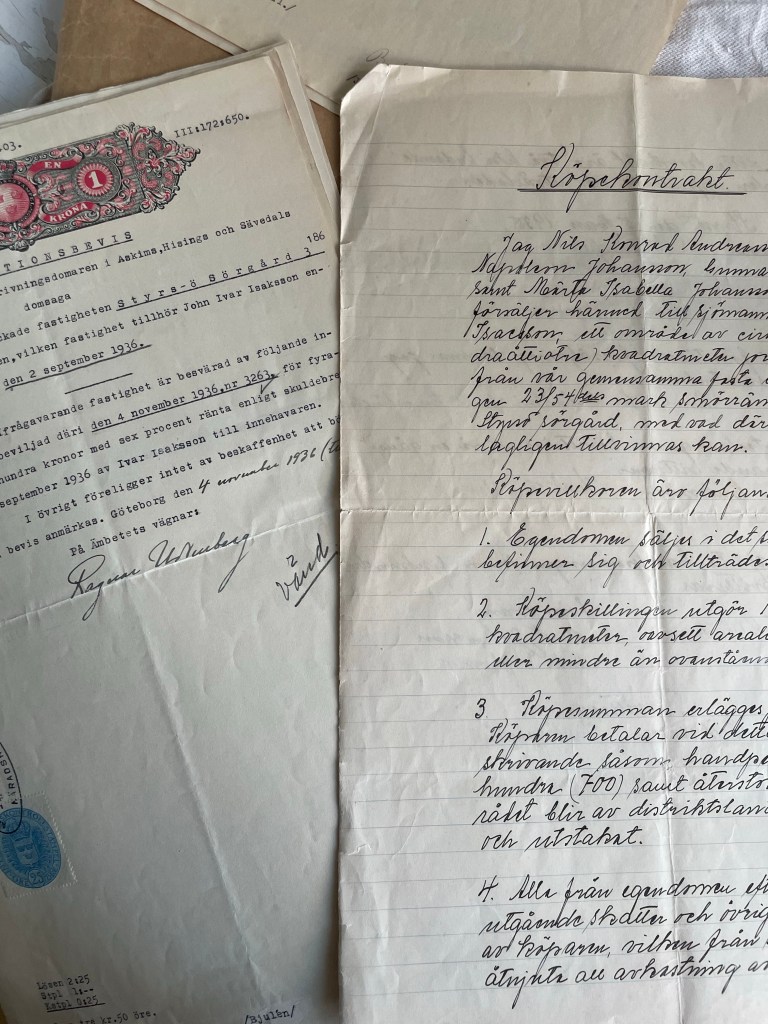 03.
III:172:650.
EN
1
KRONA
TIONSBEVIS
rivningsdomaren i Askims, Hisings och Sävedals
domsaga
186
ckade fastigheten Styrs-ö Sörgård 3
en, vilken fastighet tillhör John Ivar Isaksson en-
den 2 september 1936.
ifrågsvarande fastighet är besvärad av följande in-
beviljad däri den 4 november 1936, nr 3263, för fyra-
hundra kronor med sex procent ränta enligt skuldebre
september 1936 av Ivar Isaksson till innehavaren.
I övrigt föreligger intet av beskaffenhet att bö
bevis anmärkas. Göteborg den 4 november 1936
På Ämbetets vägnar:
Ragnar
vänd
Lösen 2:25
Stpl 1:--
Katpl 0:25
kr. 50 öre.
/Bjulén/
Köpekontrakt.
Jag Nils Konrad Andreas
Napoleon Johansson, Gunna
samt Märta Isabella Johanss
försäljer härmed till sjöman
Isacsson, ett område av cir
draåttiotre) kvadratmeter jor
från vår gemensamma fasta e
gen 23/54 mark smörrän
Styrsö sörgård, med vad där
lagligen tillvinnas kan.
Köpevillkoren äro följan
1. Egendomen säljes i det s
befinner sig och tillträdes
2. Köpeskillingen utgör 1
kvadratmeter, oavsett areal
eller mindre än ovanståen
3 Köpesumman erlägges
Köparen betalar vid dett
skrivande såsom handpe
hundra (700) samt återsto
rådet blir av distriktslan
och utstakat.
4. Alla från egendomen eft
utgående skatter och övrig
av köparen, vilken från
åtnjuta all avkastning av